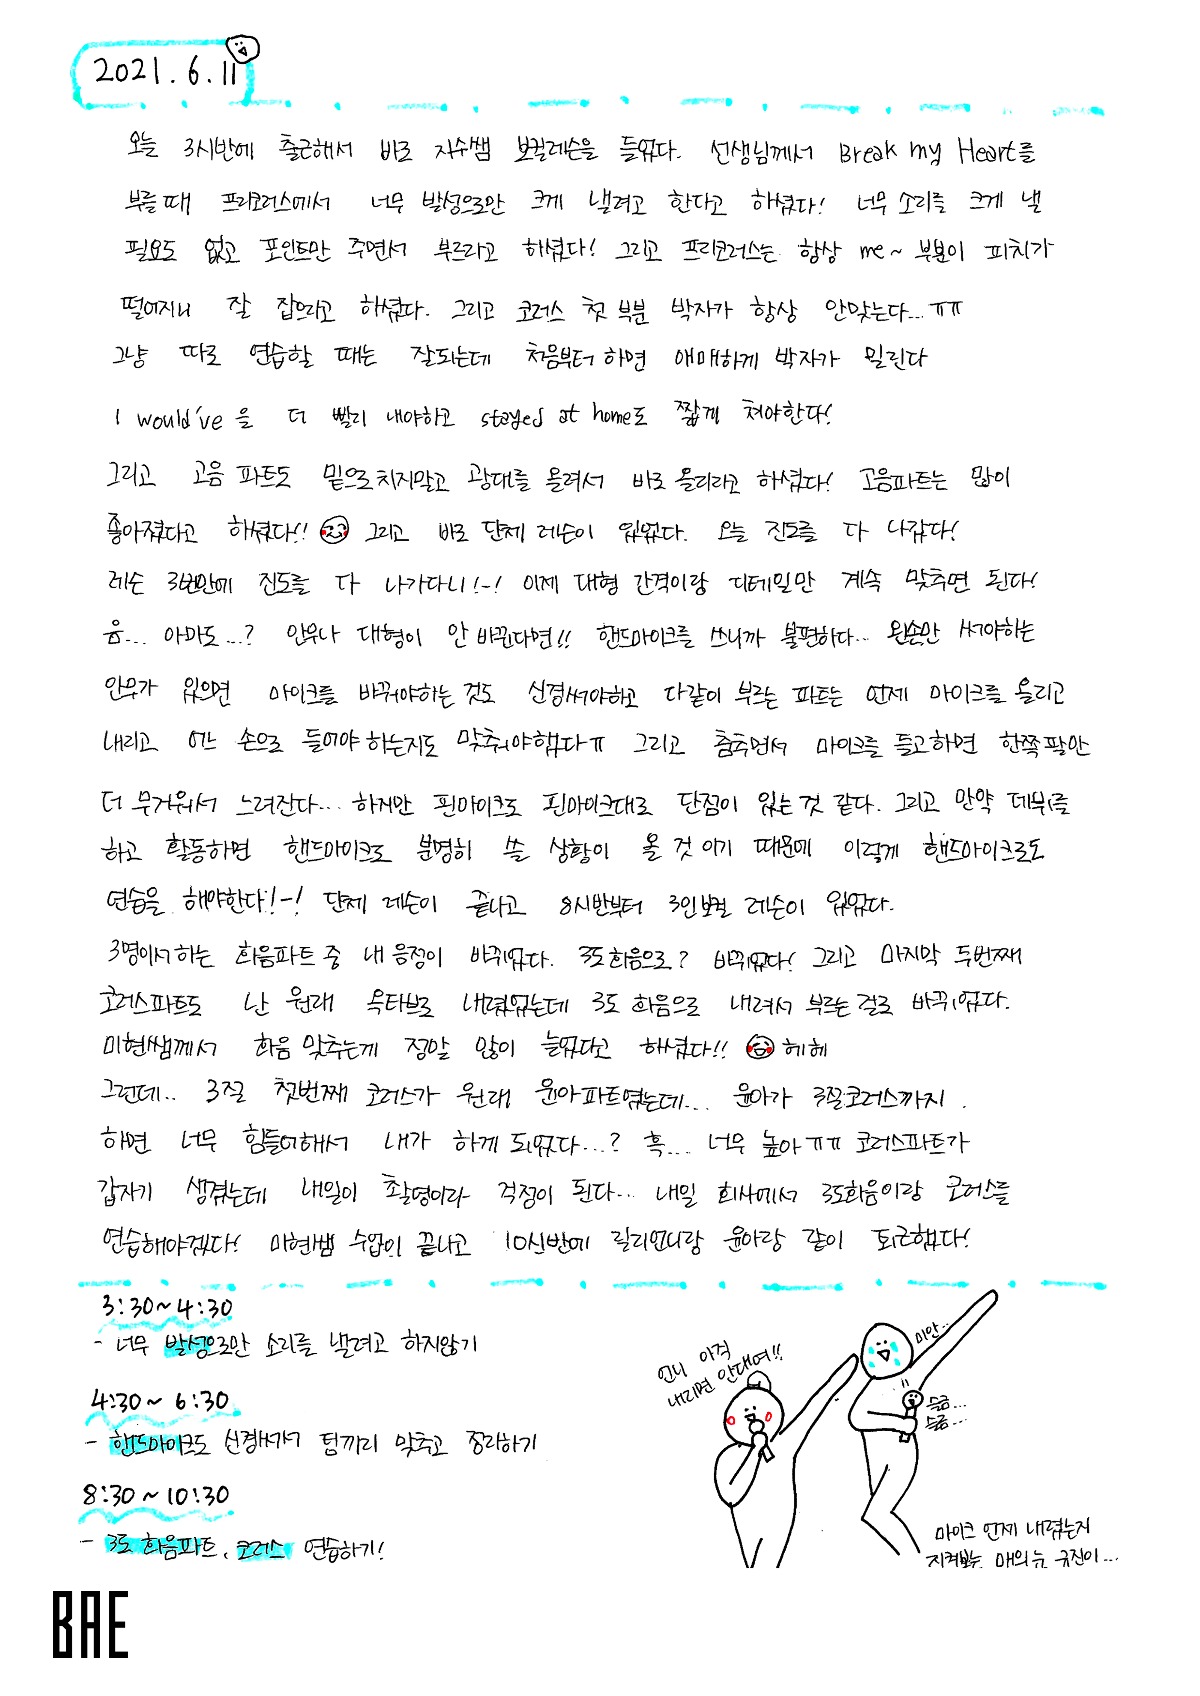 2021. 6. 11
오늘 3시반에 출근해서 바로 지수쌤 보컬레슨을 들었다. 선생님께서 Break my Heart를
부를 때 프리코러스에서 너무 발성으로만 크게 낼려고 한다고 하셨다! 너무 소리를 크게 낼
필요도 없고 포인트만 주면서 부르라고 하셨다! 그리고 프리코러스는 항상 me~ 부분이 피치가
떨어지니 잘 잡으라고 하셨다. 그리고 코러스 첫 부분 박자가 항상 안맞는다...ㅠㅠ
그냥 따로 연습할 때는 잘되는데 처음부터 하면 애매하게 박자가 밀린다
I would've 을 더 빨리 내야하고 stayed at home도 짧게 쳐야한다!
그리고 고음 파트도 밑으로 치지말고 광대를 올려서 바로 올리라고 하셨다! 고음파트는 많이
좋아졌다고 하셨다!! 그리고 바로 단체 레슨이 있었다. 오늘 진도를 다 나갔다!
레슨 3번만에 진도를 다 나가다니!-! 이제 대형 간격이랑 디테일만 계속 맞추면 된다!
음... 아마도...? 안무나 대형이 안 바뀐다면!! 핸드마이크를 쓰니까 불편하다... 왼손만 써야하는
안무가 있으면 마이크를 바꿔야하는 것도 신경써야하고 다같이 부르는 파트는 언제 마이크를 올리고
내리고 어느 손으로 들어야 하는지도 맞춰야했다ㅠ 그리고 춤추면서 마이크를 들고하면 한쪽 팔만
더 무거워서 느려진다... 하지만 핀마이크도 핀마이크대로 단점이 있는 것 같다. 그리고 만약 데뷔를
하고 활동하면 핸드마이크로 분명히 쓸 상황이 올 것 이기 때문에 이렇게 핸드마이크로도
연습을 해야한다!-! 단체 레슨이 끝나고 8시반부터 3인보컬 레슨이 있었다.
3명이서하는 화음파트 중 내 음정이 바뀌었다. 3도 화음으로? 바뀌었다! 그리고 마지막 두번째
코러스파트도 난 원래 옥타브로 내렸었는데 3도 화음으로 내려서 부르는 걸로 바뀌었다.
미현쌤께서 화음 맞추는게 정말 많이 늘었다고 하셨다!! 헤헤
그런데.. 3절 첫번째 코러스가 원래 윤아파트였는데... 윤아가 3절코러스까지
하면 너무 힘들어해서 내가 하게 되었다...? 흑... 너무 높아ㅠㅠ 코러스파트가
갑자기 생겼는데 내일이 촬영이라 걱정이 된다... 내일 회사에서 3도화음이랑 코러스를
연습해야겠다! 미현쌤 수업이 끝나고 10시반에 릴리언니랑 윤아랑 같이 퇴근했다!
3:30~4:30
- 너무 발성으로만 소리를 낼려고 하지않기
4:30~6:30
- 핸드마이크도 신경써가며 팀끼리 맞추고 정리하기
8:30~10:30
- 3도 화음파트, 코러스 연습하기!
언니 이걱
내리면 안대여!!
미안...
슥금...
슥금...
마이크 언제 내렸는지
지켜보는 매의눈 규진이...
BAE